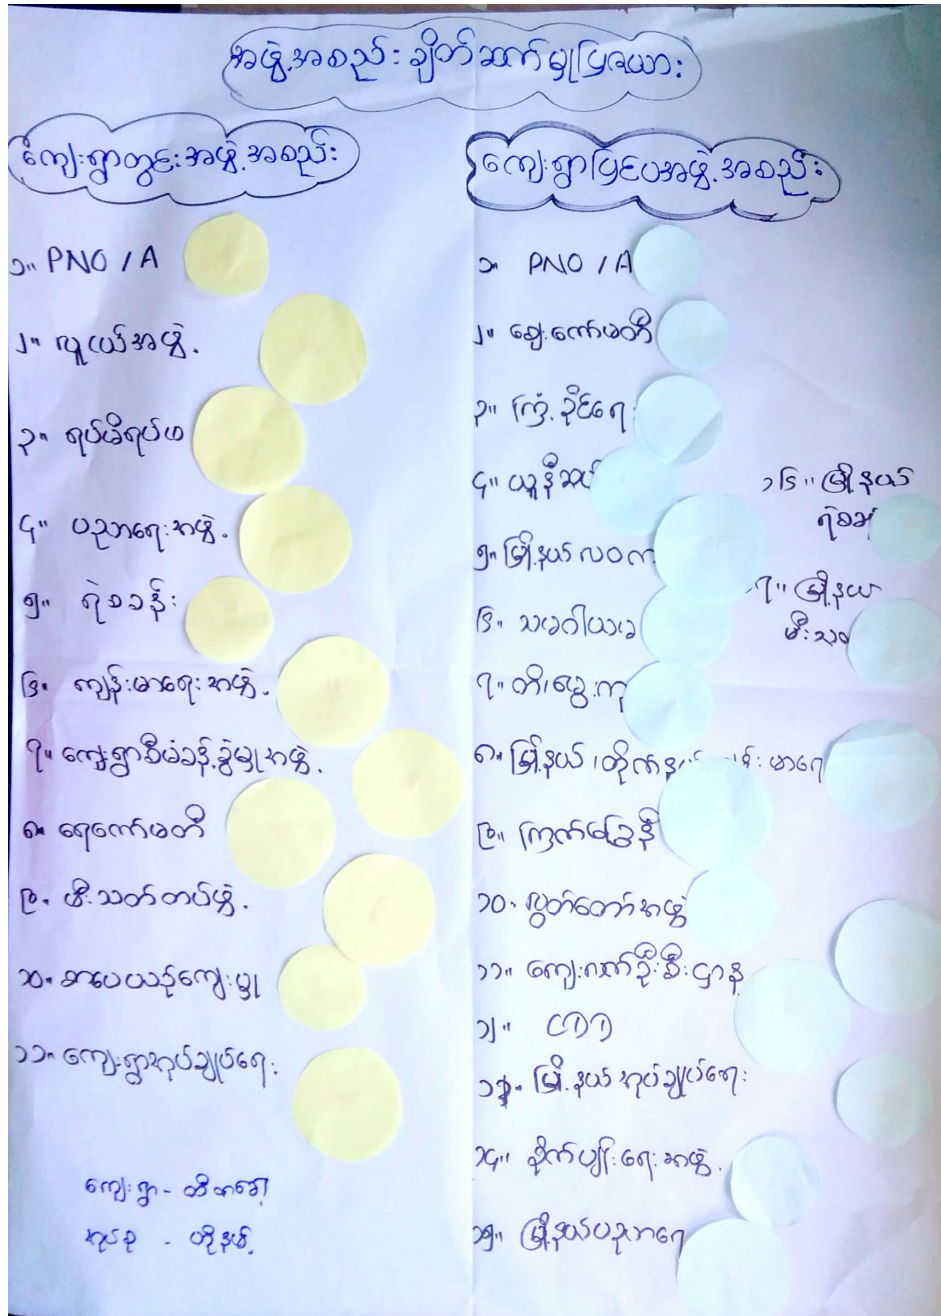 အဖွဲ့အစည်းချိတ်ဆက်မှုပြဇယား
ကျေးရွာတွင်းအဖွဲ့အစည်း
၁။ PNO / A
၂။ လူငယ်အဖွဲ့
၃။ ရပ်မိရပ်ဖ
၄။ ပညာရေးအဖွဲ့
၅။ ရဲစခန်း
၆။ ကျန်းမာရေးအဖွဲ့
၇။ ကျေးရွာစီမံခန့်ခွဲမှုအဖွဲ့
၈။ ရေကော်မတီ
၉။ မီးသတ်တပ်ဖွဲ့
၁၀။ စာပေယဉ်ကျေးမှု
၁၁။ ကျေးရွာအုပ်ချုပ်ရေး
ကျေးရွာ -
အုပ်စု -
ကျေးရွာပြင်ပအဖွဲ့အစည်း
၁။ PNO / A
၂။ ကော်မတီ
၃။ ကြံ့ခိုင်ရေး
၄။ ယူနီဆ
၅။ မြို့နယ် လဝက
၆။ သမဝါယမ
၇။ တိ၊မွေး၊ကု
၈။ မြို့နယ်၊တိုက်နယ် မာရေ
၉။ ကြက်ခြေနီ
၁၀။ လွှတ်တော်အဖွဲ့
၁၁။ ကျေးလက်ဦးစီးဌာန
၁၂။ CDD
၁၃။ မြို့နယ်အုပ်ချုပ်ရေး
၁၄။ စိုက်ပျိုးရေးအဖွဲ့
၁၅။ မြို့နယ်ပညာရေ
၁၆။ မြို့နယ်
ရဲစခ
၇။ မြို့နယ်
မီးသ